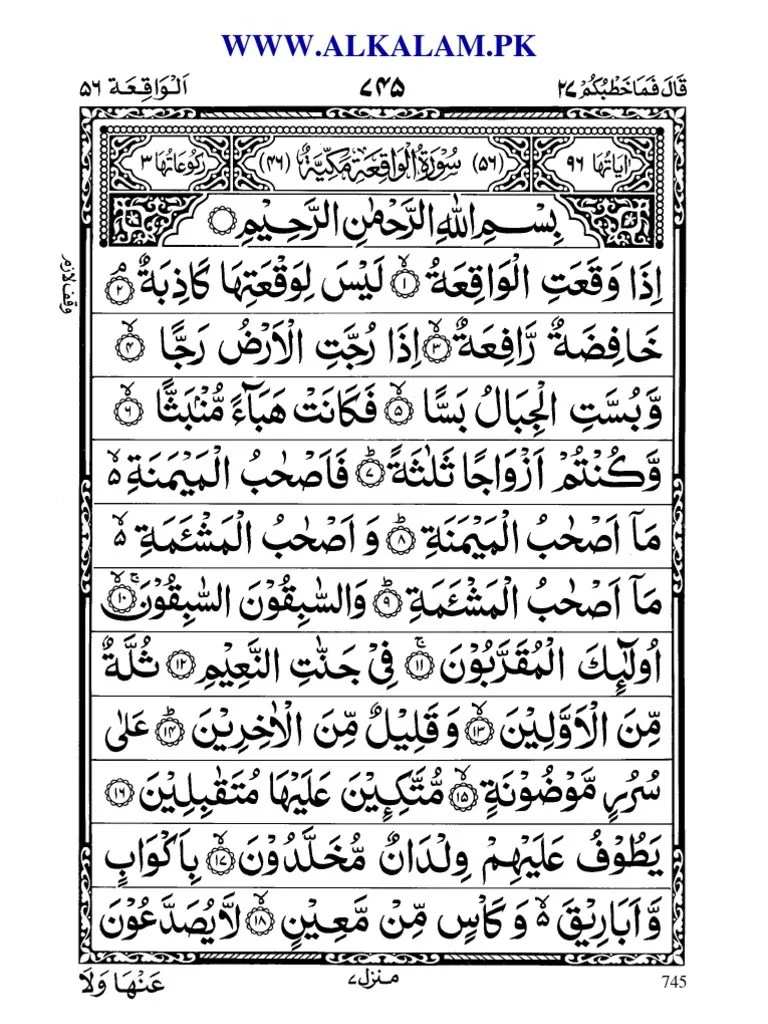 WWW.ALKALAM.PK
قَالَ فَمَا خَطْبُكُمْ ٢٧ ٧۴۵ اَلْوَاقِعَة ۵۶
اٰیَاتُهَا ٩٦ (۵۶) سُوْرَةُ الْوَاقِعَةِ مَكِّيَّةٌ (۴۶) رُكُوْعَاتُهَا ٣
بِسْمِ اللّٰهِ الرَّحْمٰنِ الرَّحِيْمِ
اِذَا وَقَعَتِ الْوَاقِعَةُ ۙ﴿١﴾ لَيْسَ لِوَقْعَتِهَا كَاذِبَةٌ ۘ﴿٢﴾
وقف لازم
خَافِضَةٌ رَّافِعَةٌ ۙ﴿٣﴾ اِذَا رُجَّتِ الْاَرْضُ رَجًّا ۙ﴿۴﴾
وَّ بُسَّتِ الْجِبَالُ بَسًّا ۙ﴿۵﴾ فَكَانَتْ هَبَآءً مُّنْۢبَثًّا ۙ﴿٦﴾
وَّ كُنْتُمْ اَزْوَاجًا ثَلٰثَةً ؕ﴿٧﴾ فَاَصْحٰبُ الْمَيْمَنَةِ ۙ۵
مَاۤ اَصْحٰبُ الْمَيْمَنَةِ ؕ﴿٨﴾ وَ اَصْحٰبُ الْمَشْـَٔمَةِ ۙ۵
مَاۤ اَصْحٰبُ الْمَشْـَٔمَةِ ؕ﴿٩﴾ وَ السّٰبِقُوْنَ السّٰبِقُوْنَ ۚۙ﴿١٠﴾
اُولٰٓئِكَ الْمُقَرَّبُوْنَ ۚ﴿١١﴾ فِيْ جَنّٰتِ النَّعِيْمِ ﴿١٢﴾ ثُلَّةٌ
مِّنَ الْاَوَّلِيْنَ ۙ﴿١٣﴾ وَ قَلِيْلٌ مِّنَ الْاٰخِرِيْنَ ؕ﴿١۴﴾ عَلٰى
سُرُرٍ مَّوْضُوْنَةٍ ۙ﴿١۵﴾ مُّتَّكِـِٕيْنَ عَلَيْهَا مُتَقٰبِلِيْنَ ﴿١٦﴾
يَطُوْفُ عَلَيْهِمْ وِلْدَانٌ مُّخَلَّدُوْنَ ۙ﴿١٧﴾ بِاَكْوَابٍ
وَّ اَبَارِيْقَ ۙ۵ وَ كَاْسٍ مِّنْ مَّعِيْنٍ ۙ﴿١٨﴾ لَّا يُصَدَّعُوْنَ
عَنْهَا وَلَا
منزل ٧
745